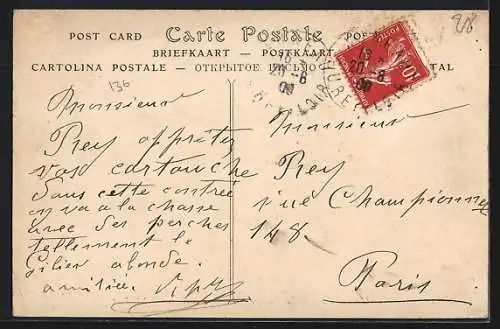 POST CARD Carte Postale
BRIEFKAART — POSTKAART
CARTOLINA POSTALE — ОТКРЫТОЕ
136
Monsieur
Rey apprêter
vos cartouche
dans cette contrée
on va a la chasse
avec des perches
tellement le
Gibier abonde.
amitiés.
Monsieur
Rey
rue Championnet
148.
Paris
POSTES
10